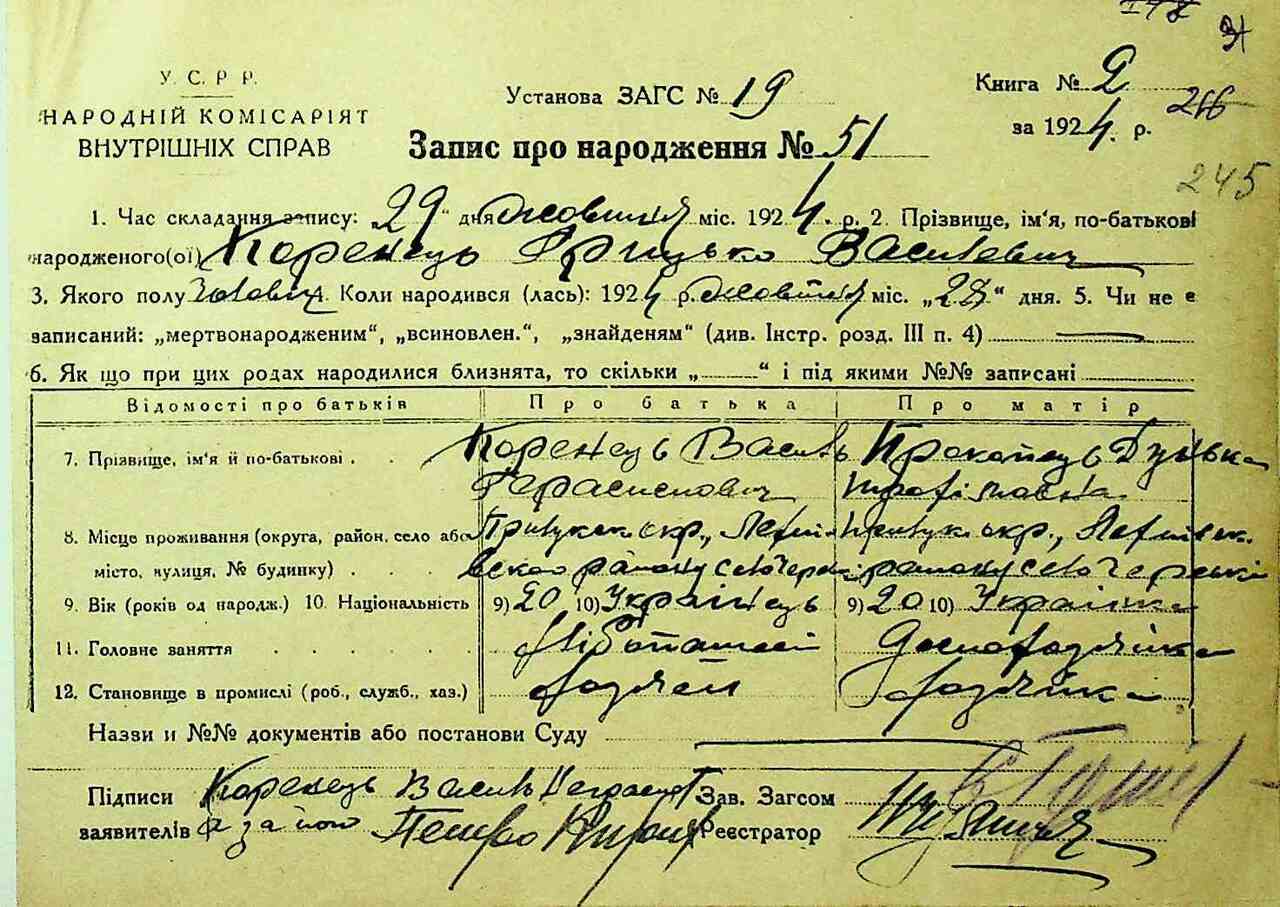 31
У. С. Р Р.
НАРОДНІЙ КОМІСАРІЯТ
ВНУТРІШНІХ СПРАВ
Установа ЗАГС № 19
Книга № 2
за 1924 р.
216
Запис про народження № 51
245
1. Час складання запису: „29“ дня Жовтня міс. 1924 р. 2. Прізвище, ім'я, по-батькові
народженого(ої) Коренець Грицько Васильевич
3. Якого полу Чоловіч. Коли народився (лась): 1924 р. Жовтня міс. „28“ дня. 5. Чи не є
записаний: „мертвонародженим“, „всиновлен.“, „знайденям“ (див. Інстр. розд. III п. 4)
6. Як що при цих родах народилися близнята, то скільки „ “ і під якими №№ записані
Відомості про батьків Про батька Про матір
7. Прізвище, ім'я й по-батькові . . Коренець Василь Прокопець Дунька
Герасимович Трофімовна
8. Місце проживання (округа, район, село або Прилукск окр.,
місто, вулиця, № будинку) . . . району село району село
9. Вік (років од народж.) 10. Національність 9) 20 10) Українець 9) 20 10) Українка
11. Головне заняття . . . . . . Хліборобство
12. Становище в промислі (роб., служб., хаз.) хазяїн хазяйка
Назви и №№ документів або постанови Суду
Підписи Коренець Василь Зав. Загсом
заявителів а за його Петро Реєстратор